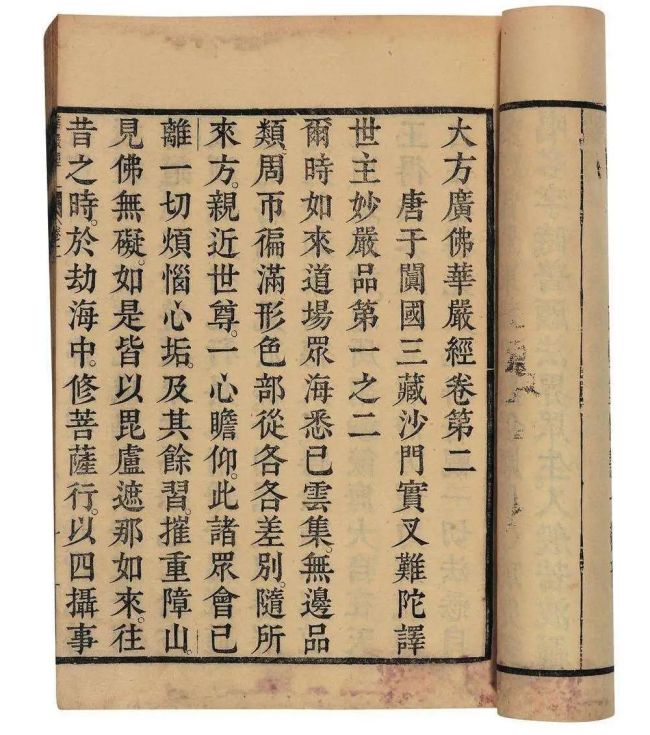 大方廣佛華嚴經卷第二
唐于闐國三藏沙門實叉難陀譯
世主妙嚴品第一之二
爾時如來道場眾海悉已雲集。無邊品
類。周帀徧滿形色部從各各差別。隨所
來方。親近世尊。一心瞻仰。此諸眾會已
離一切煩惱心垢。及其餘習。摧重障山。
見佛無礙。如是皆以毘盧遮那如來。往
昔之時。於劫海中。修菩薩行。以四攝事